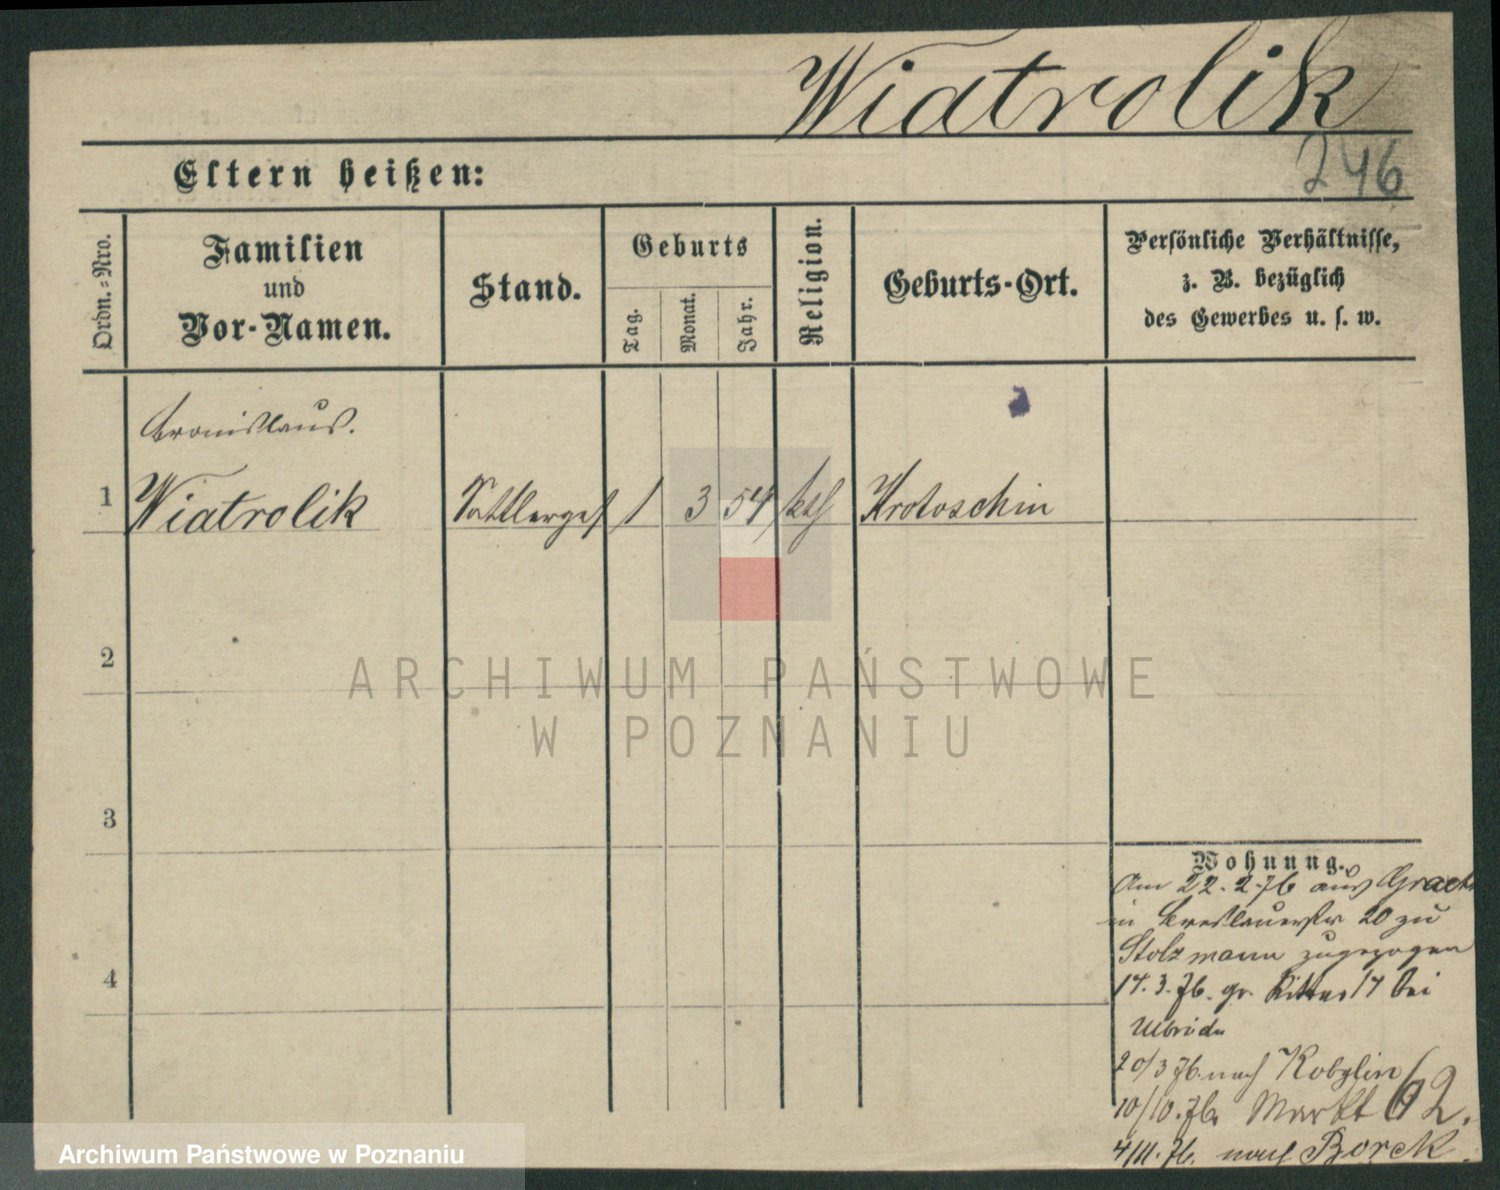 Wiatrolik
246
Eltern heißen:
Ordn.=Nro.
Familien
und
Vor-Namen.
Stand.
Geburts
Tag.
Monat.
Jahr.
Religion.
Geburts-Ort.
Persönliche Verhältnisse,
z. B. bezüglich
des Gewerbes u. s. w.
Bronislaus.
1 Wiatrolik Sattlerges 1 3 54 kth Krotoschin
2
3
4
Wohnung.
Am 22.2.76 aus Graetz
in Breslauerstr 20 zu
Stolzmann zugezogen
17.3.76. gr. Ritter 17 bei
20/3 76. nach Kobylin
10/10.76. Markt 62.
4/11.76. nach Borek.
ARCHIWUM PAŃSTWOWE
W POZNANIU
Archiwum Państwowe w Poznaniu